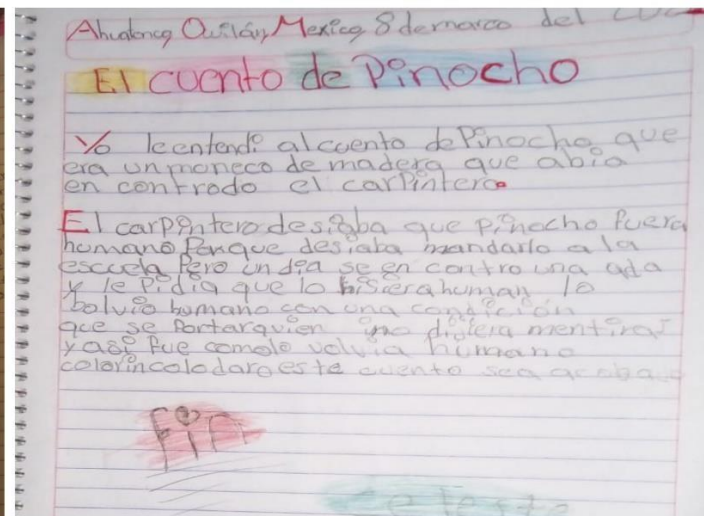 Ahualonco Ocuilán, Mexico, 8 demarco del
El cuento de Pinocho
Yo leentendi alcuento dePinocho que
era unmoneco de madera que abia
en controdo el carpintero
El carpinterodesiaba que Pinocho fuera
humano Porque desiaba mandarlo a la
escuela Pero un dia se en contro una ada
y le pidia que lo hisiera human lo
bolvio humano con una condición
que se Portarquien ino dijera mentiras
yasi fue comolo volvia humano
colorincolodaroeste cuento sea acoba
Fin
celeste